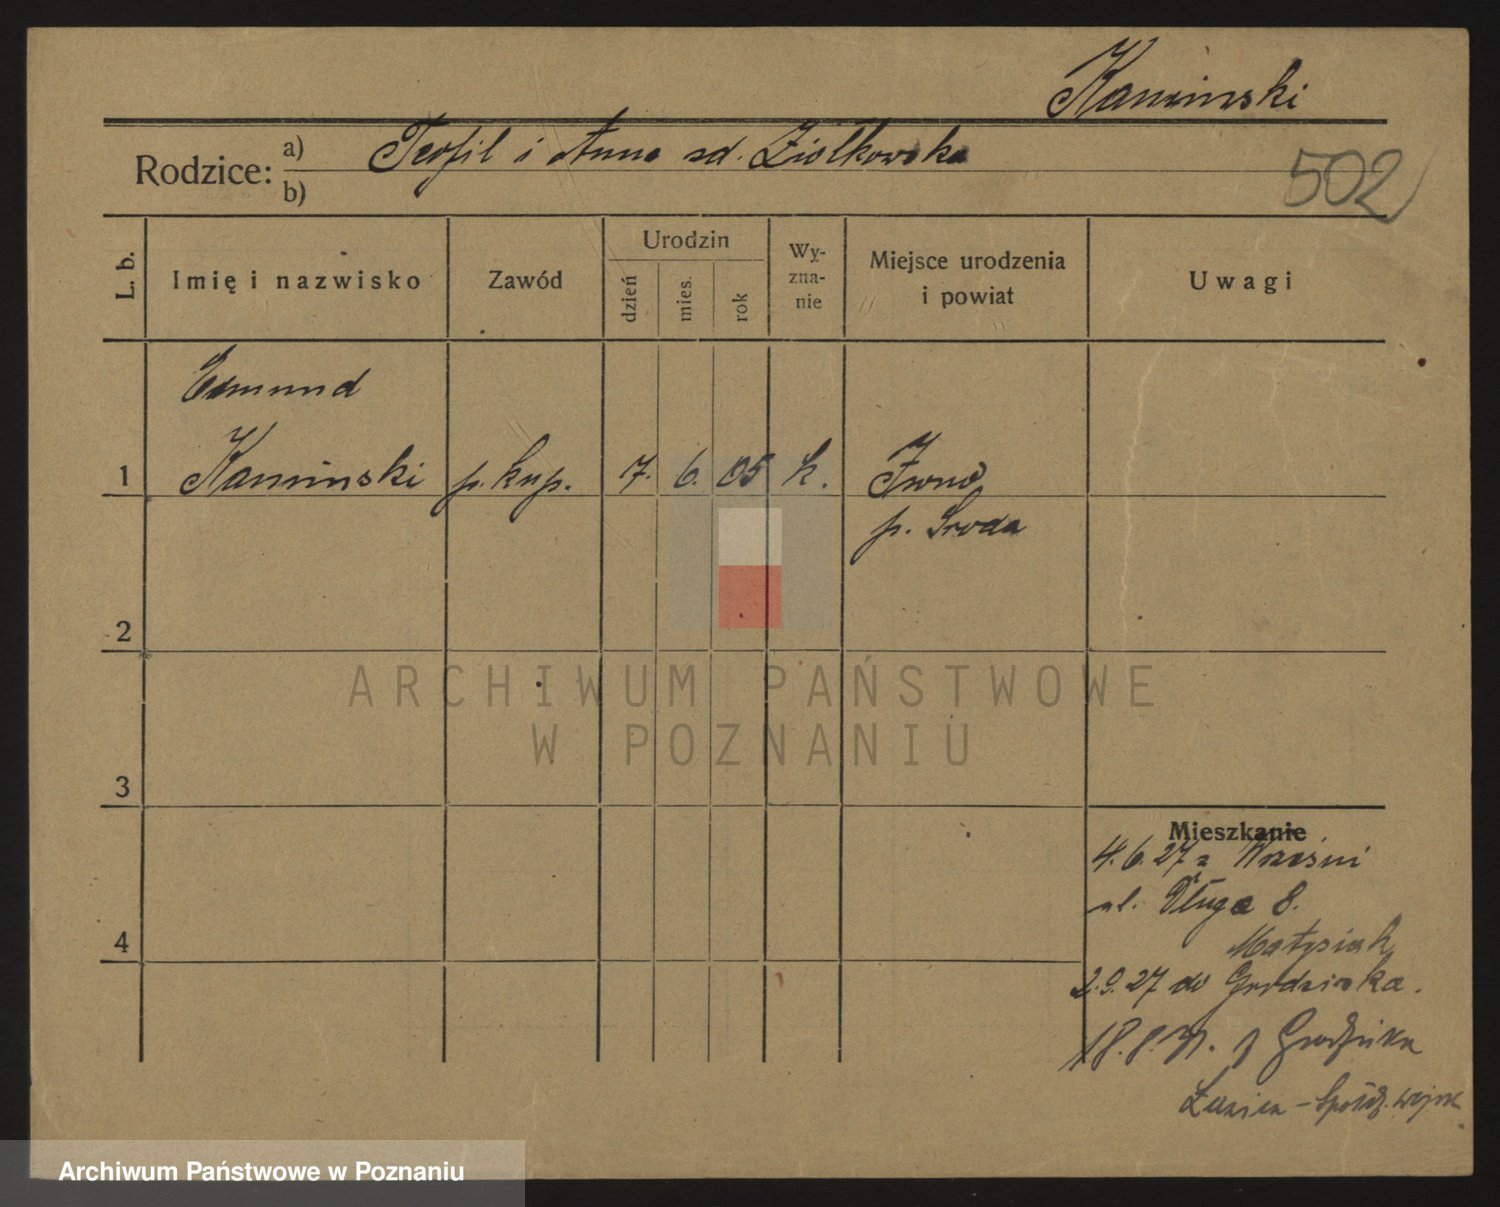 Kaminski
Rodzice: a) Teofil i Anna zd. Ziółkowska
b)
502
L. b.
Imię i nazwisko
Zawód
Urodzin
dzień
mies.
rok
Wy-
zna-
nie
Miejsce urodzenia
i powiat
Uwagi
Edmund
1 Kaminski p. kup. 7. 6. 05 k. Iwno
p. Sroda
2
3
4
ARCHIWUM PAŃSTWOWE
W POZNANIU
Mieszkanie
4.6.27 z Wrześni
ul. Długa 8.
Matysiak
2.9.27 do Grodziska.
18.8.31. z Grodziska
Spółdz. wojsk
Archiwum Państwowe w Poznaniu